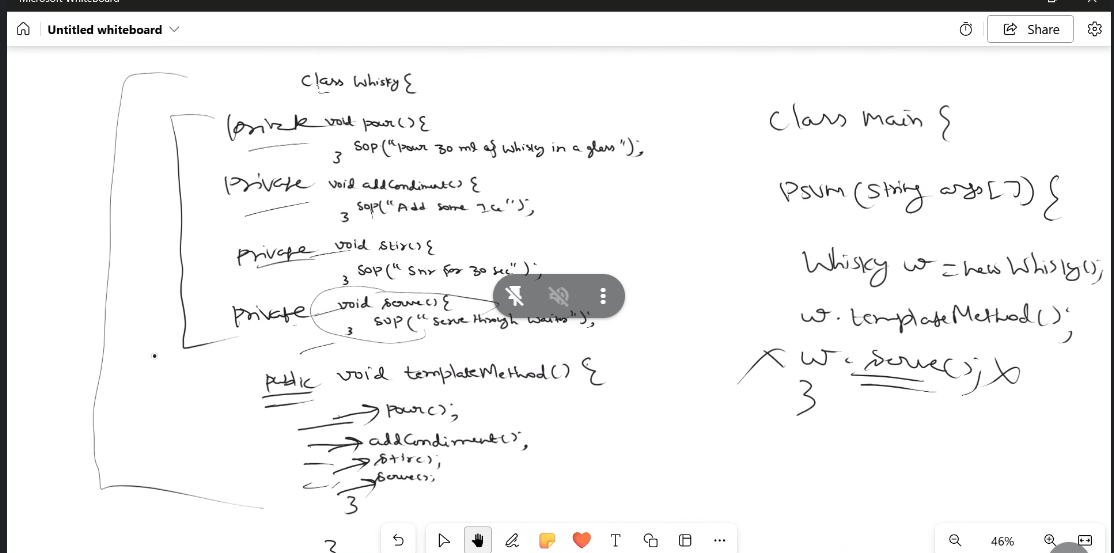 Microsoft Whiteboard
Untitled whiteboard
Share
Class Whisky {
private void pour() {
SOP("Pour 30 ml of Whisky in a glass");
}
private void addCondiment() {
SOP("Add some Ice");
}
private void stir() {
SOP("Stir for 30 sec");
}
private void serve() {
SOP("Serve through waiter");
}
public void templateMethod() {
pour();
addCondiment();
stir();
serve();
}
}
Class main {
PSVM (String args[]) {
Whisky w = new Whisky();
w.templateMethod();
w.serve();
}
46%